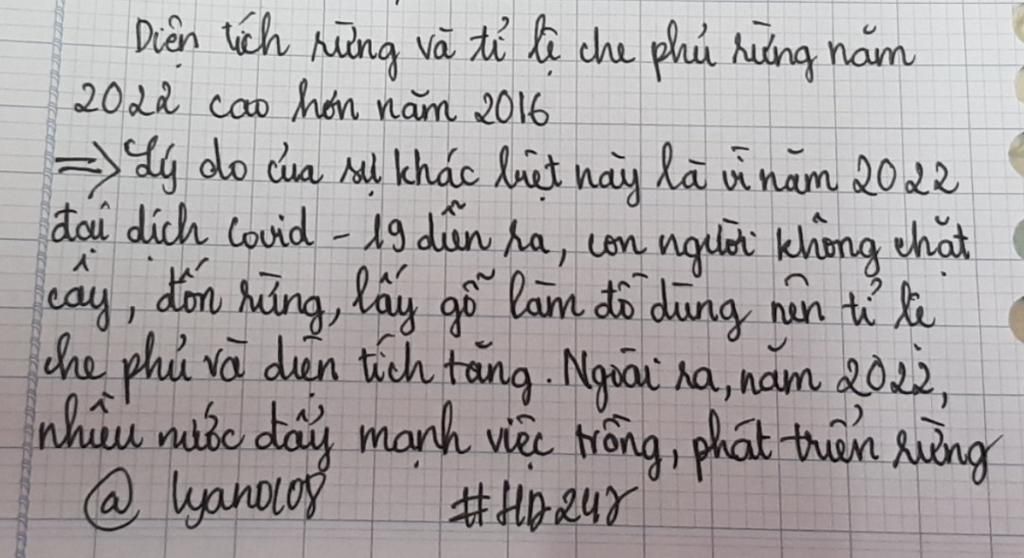 Diện tích rừng và tỉ lệ che phủ rừng năm
2022 cao hơn năm 2016
=> Lý do của sự khác biệt này là vì năm 2022
đại dịch Covid - 19 diễn ra, con người không chặt
cây, đốn rừng, lấy gỗ làm đồ dùng nên tỉ lệ
che phủ và diện tích tăng. Ngoài ra, năm 2022,
nhiều nước đẩy mạnh việc trồng, phát triển rừng
@ lyano108 #HD247